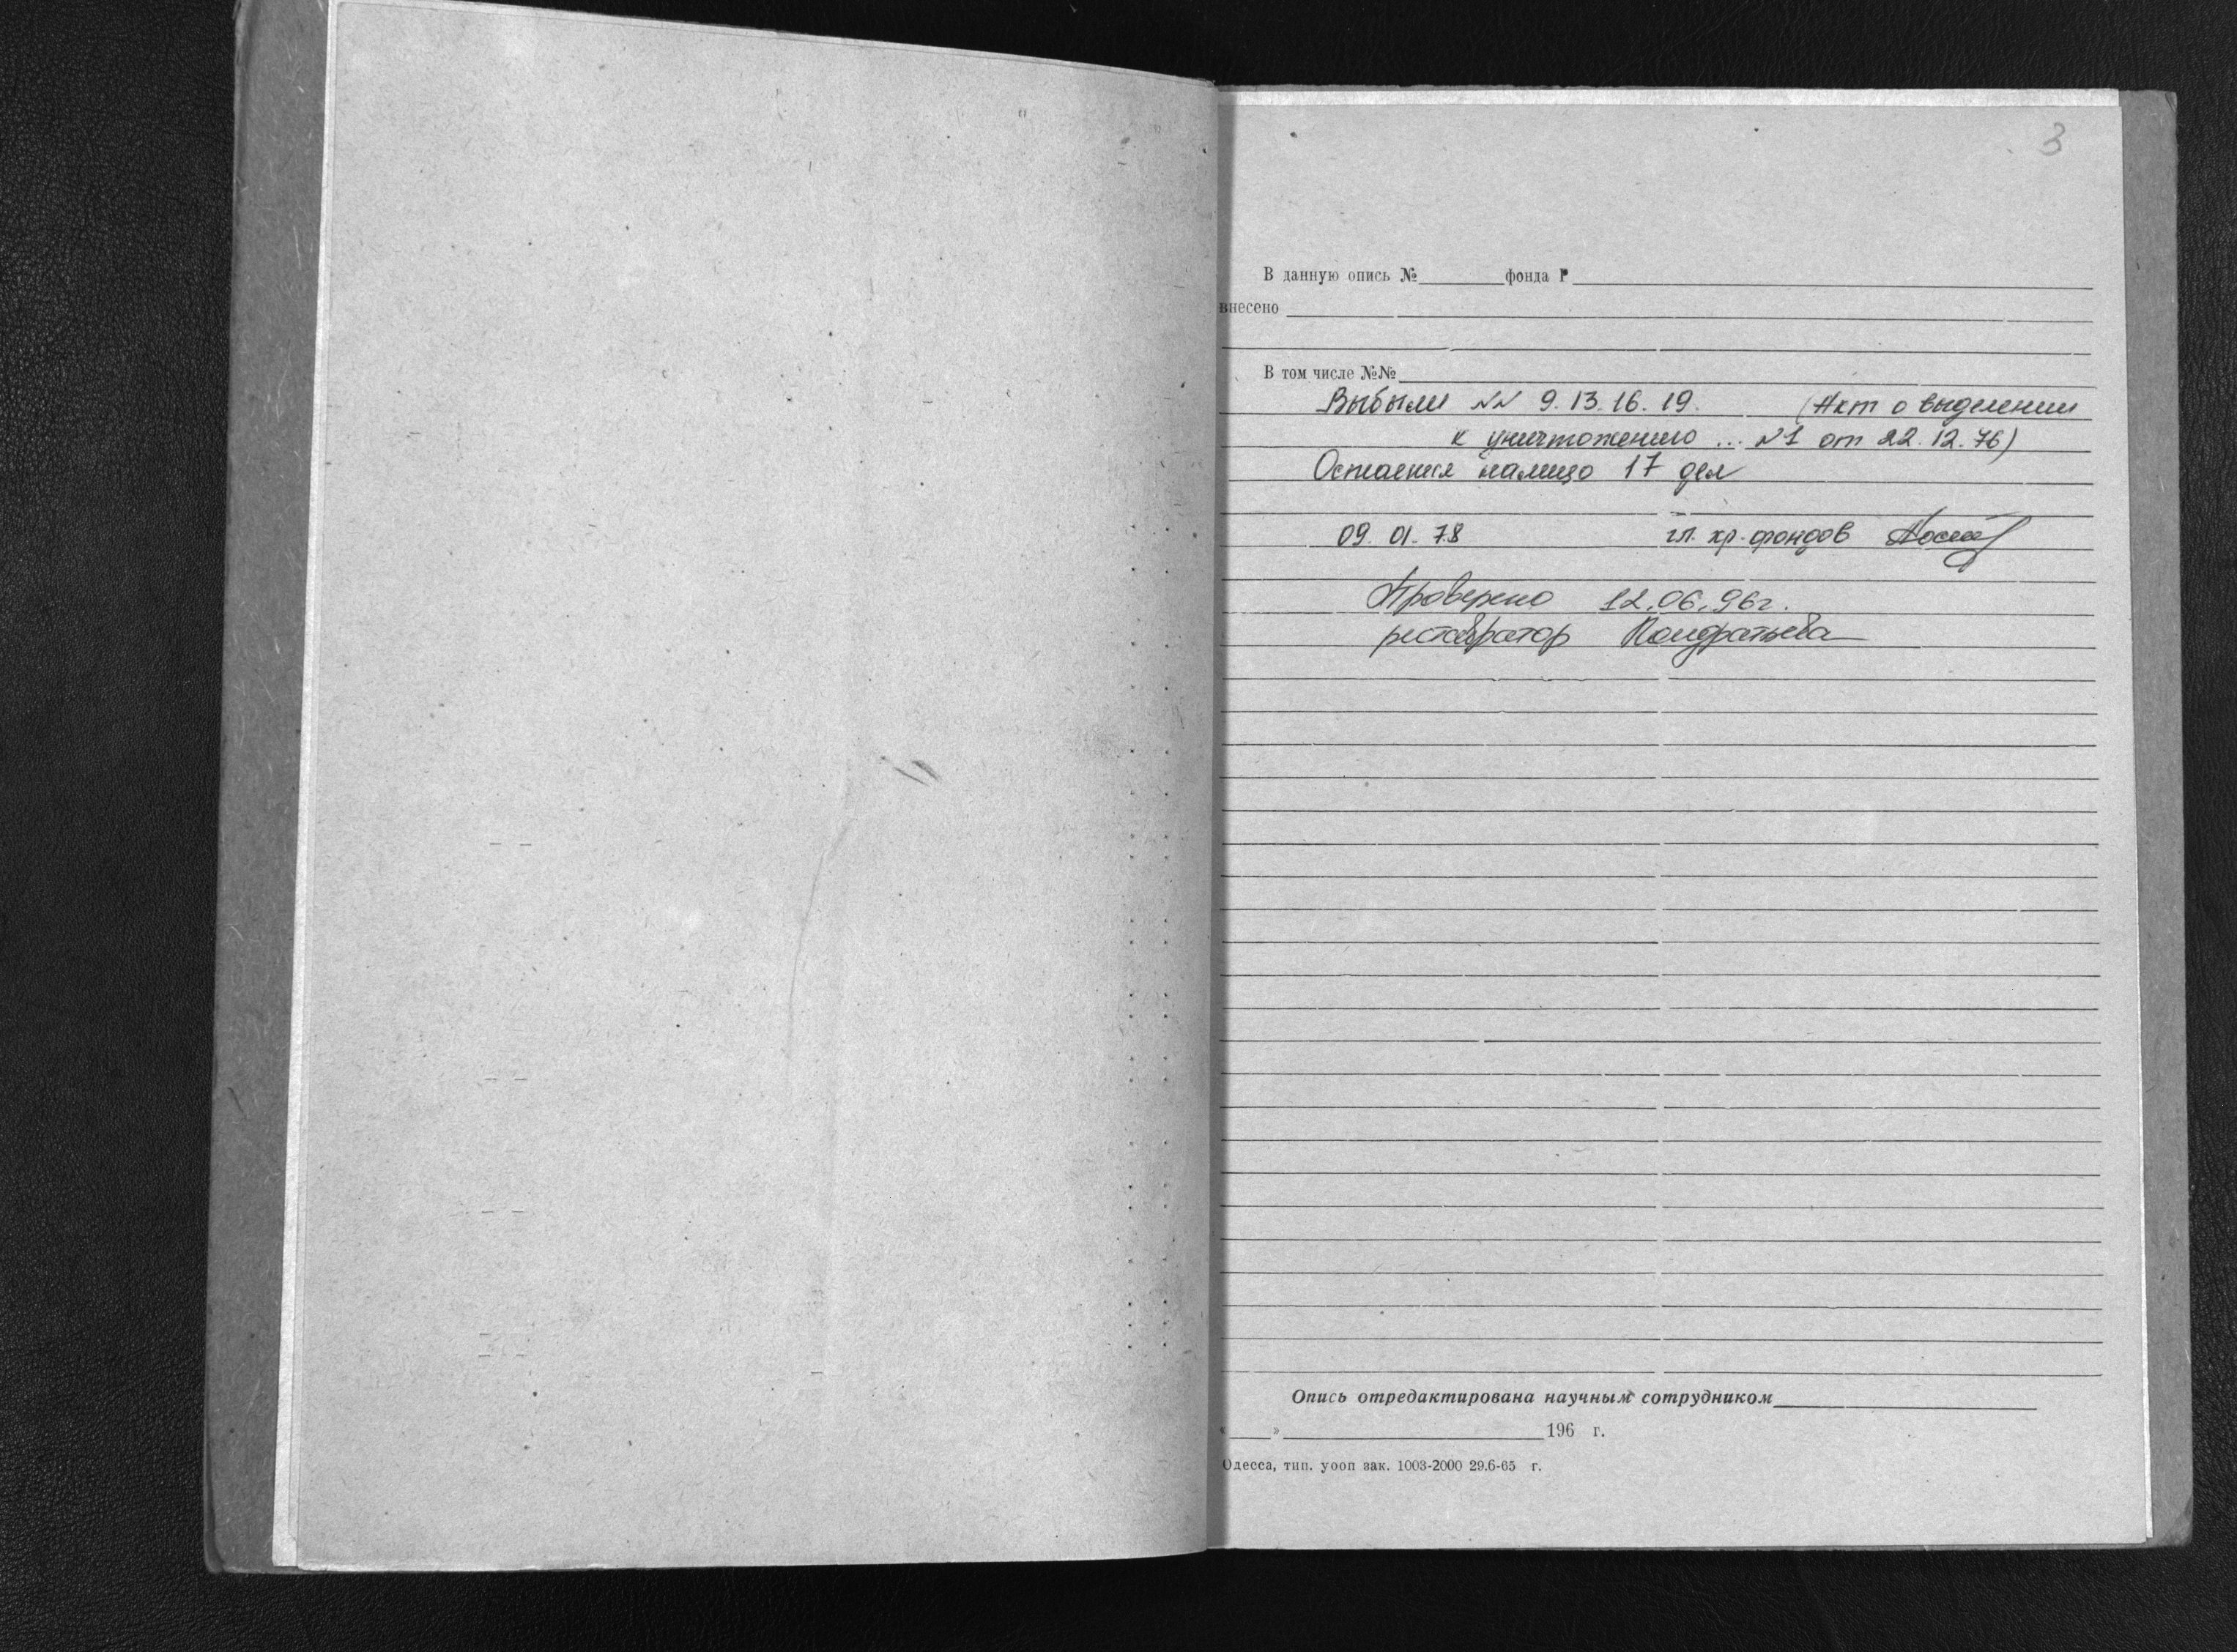 3
В данную опись № фонда Р
внесено
В том числе №№
Выбыли NN 9. 13. 16. 19. (Акт о выделении
к уничтожению ... N1 от 22. 12. 76)
Остается налицо 17 дел
09. 01. 78 гл. хр. фондов
Проверено 12.06.96г.
реставратор Кондратьева
Опись отредактирована научным сотрудником
« » 196 г.
Одесса, тип. уооп зак. 1003-2000 29.6-65 г.